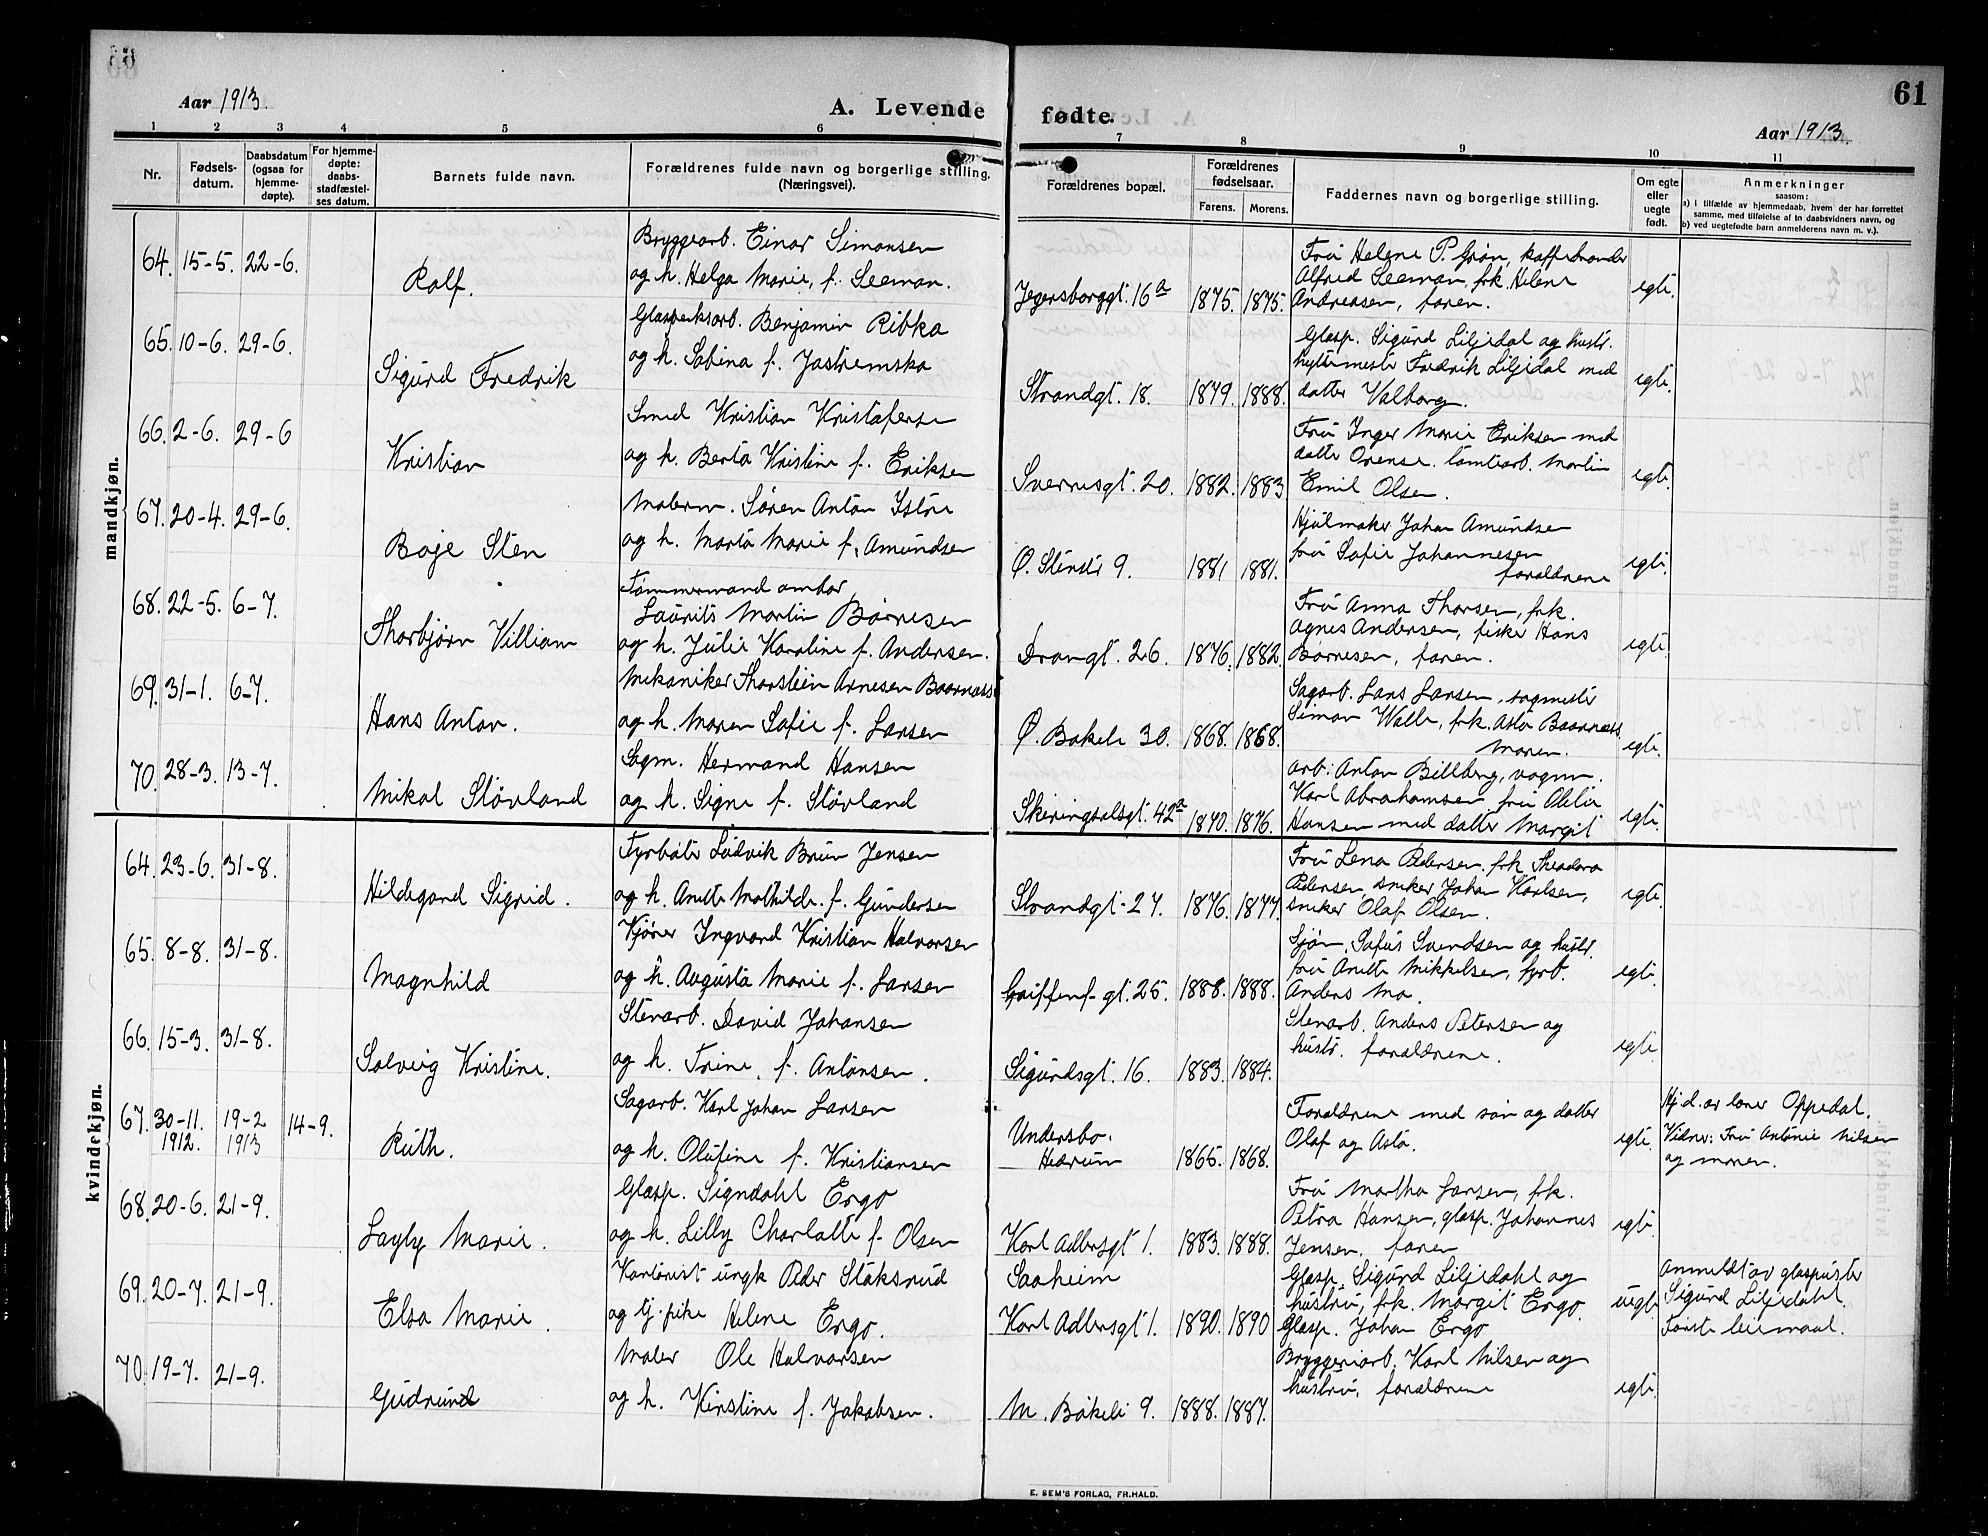 61
Aar 1913.
A. Levende fødte.
Aar 1913.
1 2 3 4 5 6 7 8 9 10 11
Nr.
Fødsels-
datum.
Daabsdatum
(ogsaa for
hjemme-
døpte).
For hjemme-
døpte:
daabs-
stadfæstel-
ses datum.
Barnets fulde navn.
Forældrenes fulde navn og borgerlige stilling.
(Næringsvei).
Forældrenes bopæl.
Forældrenes
fødselsaar.
Farens. Morens.
Faddernes navn og borgerlige stilling.
Om egte
eller
uegte
født.
Anmerkninger
saasom:
a) i tilfælde av hjemmedaab, hvem der har forrettet
samme, med tilføielse af to daabsvidners navn, og
b) ved uegtefødte barn anmelderens navn m. v.).
mandkjøn.
64. 15-5. 22-6.
Rolf.
Bryggearb. Einar Simonsen
og h. Helga Marie, f. Seeman.
Jegersborggt. 16a
1875. 1875.
Fru Helene P. Grøn,
Alfred Seeman, frk. Helene
Andreasen, faren.
egte.
65. 10-6. 29-6.
Sigurd Fredrik
Glasverksarb. Benjamin Ribka
og h. Sabina f. Jastremska
Strandgt. 18.
1879. 1888.
Glasp. Sigurd Liljedal og hustr.
hyttemester Fredrik Liljedal med
datter Valborg.
egte.
66. 2-6. 29-6
Kristian
Smed Kristian Kristofersen
og h. Berta Kristine f. Eriksen
Sverresgt. 20.
1882. 1883
Fru Inger Marie Eriksen med
datter Orense. tomtearb. Martin
Emil Olsen.
egte.
67. 20-4. 29-6.
Boje Sten
Malerm. Søren Anton Istre
og h. Marta Marie f. Amundsen
Ø. Stenstr 9.
1881 1881.
Hjulmaker Johan Amundsen
fru Sofie Johannesen
forældrene
egte.
68. 22-5. 6-7.
Thorbjørn Villiam
Tømmermand ombor
Laurits Martin Børresen
og h. Julie Karoline f. Andersen.
Drongt. 26.
1876. 1882.
Fru Anna Thorsen, frk.
Agnes Andersen, fisker Hans
Børresen, faren.
egte.
69. 31-1. 6-7.
Hans Anton.
Mekaniker Thorstein Arnesen Baarnæss
og h. Maren Sofie f. Larsen
Ø. Bøkeli 30.
1868. 1868.
Sagarb. Lars Larsen, sagmester
Simon Walle, frk. Asta Baarnæss
moren.
egte.
70. 28-3. 13-7.
Mikal Støvland
Sagm. Hermand Hansen
og h. Signe f. Støvland
Skiringsalsgt. 42a
1870. 1876.
arb: Anton Billberg, vognm.
Karl Abrahamsen, fru Olelie
Hansen med datter Margit
egte.
kvindekjøn.
64. 23-6. 31-8.
Hildegard Sigrid.
Fyrbøter Ludvik Brun Jensen
og h. Anette Mathilde. f. Gundersen
Strandgt. 27.
1876. 1877.
Fru Lena Pedersen. frk Theadora
Pedersen, snekker Johan Karlsen,
snekker Olaf Olsen.
egte.
65. 8-8. 31-8.
Magnhild
Kjører Ingvard Kristian Halvorsen
og h. Augusta Marie f. Larsen
Griffenf- gt. 25.
1888. 1888.
Sjøm. Sofus Svendsen og hustr.
fru Anette Mikkelsen, fyrb.
Anders Mo.
egte.
66. 15-3. 31-8.
Solveig Kristine.
Stenarb. David Johansen
og h. Trine. f. Antonsen.
Sigurdsgt. 16.
1883. 1884.
Stenarb. Anders Petersen og
hustr. forældrene.
egte.
67. 30-11. 1912. 19-2 1913 14-9.
Ruth.
Sagarb. Karl Johan Larsen
og h. Olufine f. Kristiansen
Undersbo.
Hedrum
1865. 1868.
Forældrene med søn og datter
Olaf og Asta.
egte.
Hj.d. av lærer Oppedal.
Vidner: Fru Antonie Nilsen
og moren.
68. 20-6. 21-9.
Layly Marie.
Glasp. Signdahl Ergo
og h. Lilly Charlotte f. Olsen
Karl Adlersgt 1.
1883. 1888.
Fru Martha Larsen, frk.
Petra Hansen, glasp. Johannes
Jensen, faren
egte.
69. 20-7. 21-9.
Elsa Marie.
Kontorist ungk Peder Staksrud
og tj. pike Helene Ergo.
Saaheim
Karl Adlersgt 1.
1890. 1890
Glasp. Sigurd Liljedahl og
hustru, frk. Margit Ergo.
Glasp. Johan Ergo
uegte
Anmeldt av glaspuster
Sigurd Liljedahl.
Første leiermaal.
70. 19-7. 21-9.
Gudrund
Maler Ole Halvorsen
og h. Kirstine f. Jakobsen.
M. Bøkeli 9.
1888. 1887.
Bryggeriarb. Karl Nilsen og
hustru, forældrene
egte.
E. SEM'S FORLAG, FR.HALD.